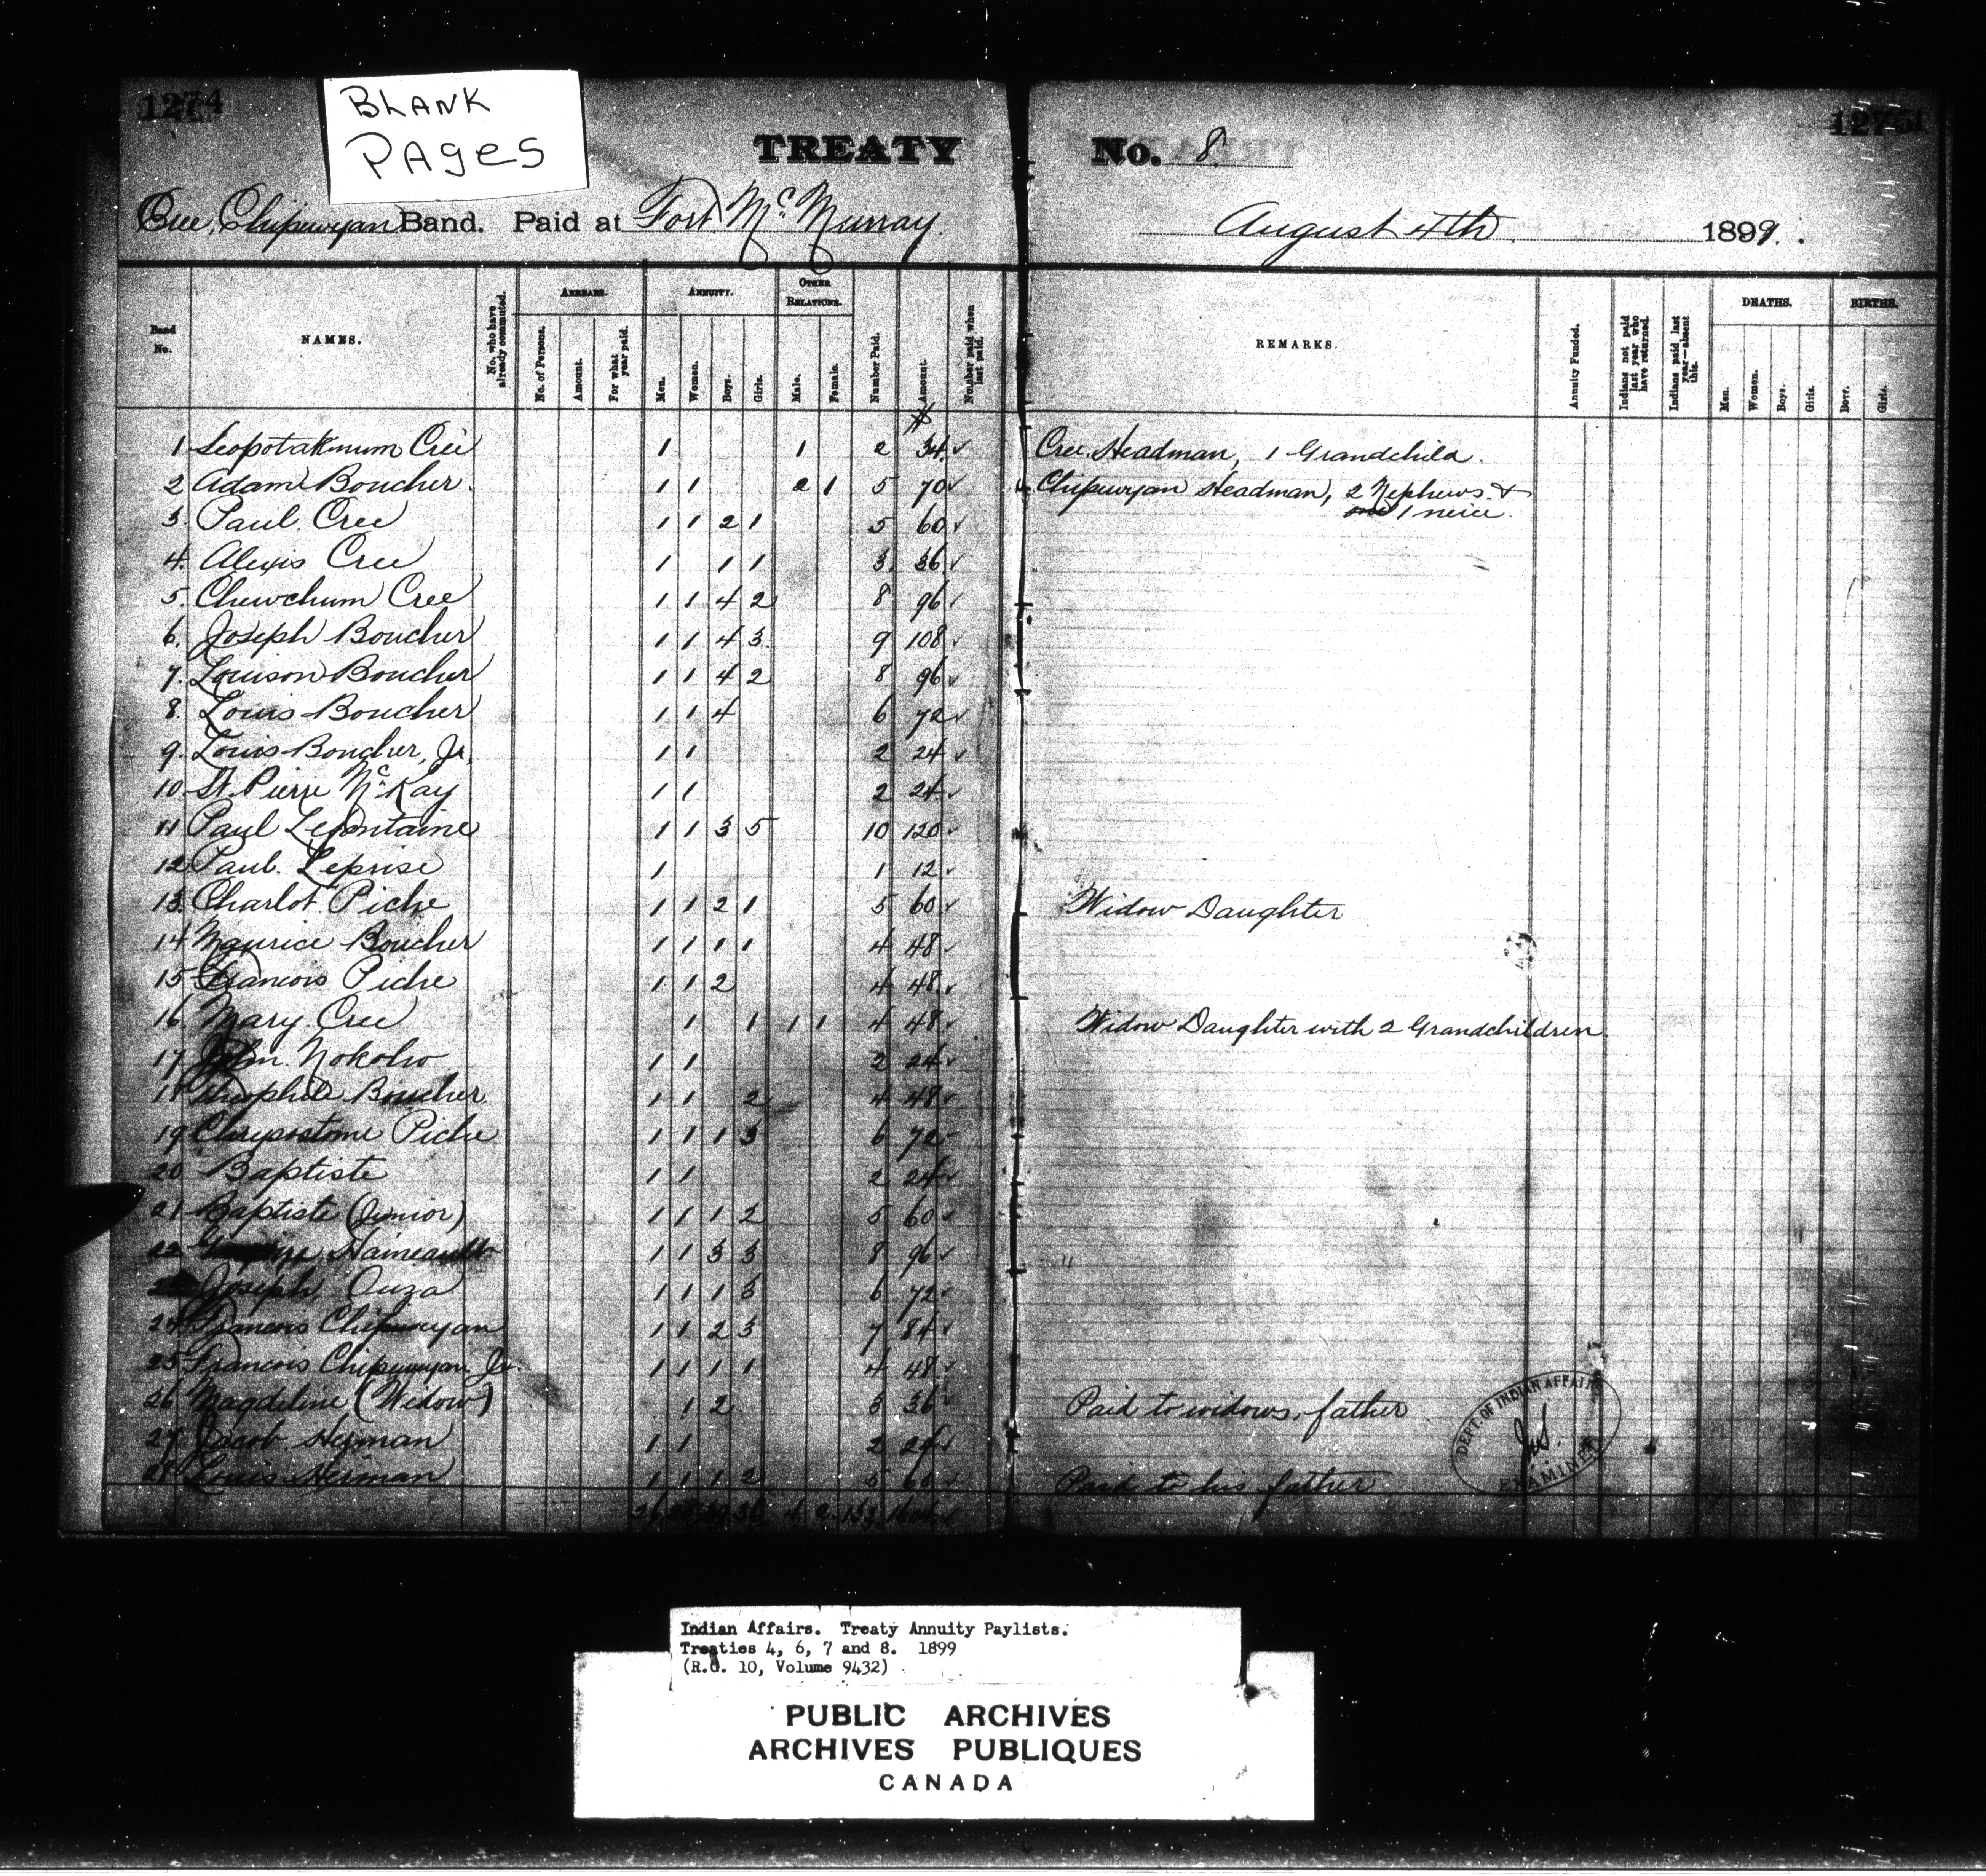 1274
BLANK
PAGES
1275
TREATY No. 8.
Cree, Chipewyan Band. Paid at Fort McMurray. August 4th 1899.
Band No. NAMES. No. who have already commuted. ARREARS. No. of Persons. Amount. For what year paid. ANNUITY. Men. Women. Boys. Girls. OTHER RELATIONS. Male. Female. Number Paid. Amount. Number paid when last paid. REMARKS. Annuity Funded. Indians not paid last year who have returned. Indians paid last year—absent this. DEATHS. Men. Women. Boys. Girls. BIRTHS. Boys. Girls.
$
1 Seopotakmum Cree 1 1 2 34. ✓ Cree Headman, 1 Grandchild.
2 Adam Boucher. 1 1 2 1 5 70 ✓ Chipewyan Headman, 2 Nephews &
1 neice.
3. Paul Cree 1 1 2 1 5 60 ✓
4. Alexis Cree 1 1 1 3. 36. ✓
5. Chewchum Cree 1 1 4 2 8 96 ✓
6. Joseph Boucher 1 1 4 3. 9 108 ✓
7. Louison Boucher 1 1 4 2 8 96 ✓
8. Louis Boucher 1 1 4 6 72 ✓
9. Louis Boucher, Jr. 1 1 2 24 ✓
10. St. Pierre McKay 1 1 2 24. ✓
11 Paul Lefontaine 1 1 3 5 10 120 ✓
12 Paul Leprise 1 1 12 ✓
13. Charlot Piche 1 1 2 1 5 60 ✓ Widow Daughter
14 Maurice Boucher 1 1 1 1 4 48 ✓
15 Francois Piche 1 1 2 4 48 ✓
16 Mary Cree 1 1 1 1 4 48 ✓ Widow Daughter with 2 Grandchildren
17 John Nokoho 1 1 2 24 ✓
18 Theophile Boucher. 1 1 2 4 48 ✓
19 Chrysostome Piche 1 1 1 3 6 72
20 Baptiste 1 1 2 24 ✓
21 Baptiste (Junior) 1 1 1 2 5 60 ✓
22 1 1 3 3 8 96 ✓ "
Joseph Ouza 1 1 1 3 6 72 ✓
24 Francois Chipewyan 1 1 2 3 7 84 ✓
25 Francois Chipewyan Jr. 1 1 1 1 4 48 ✓
26 Magdeline (Widow) 1 2 3 36 ✓ Paid to widows father
27 Jacob Heiman 1 1 2 24 ✓
28 Louis Heiman 1 1 1 2 5 60 ✓ Paid to his father
DEPT. OF INDIAN AFFAIRS
EXAMINER
Indian Affairs. Treaty Annuity Paylists.
Treaties 4, 6, 7 and 8. 1899
(R.G. 10, Volume 9432)
PUBLIC ARCHIVES
ARCHIVES PUBLIQUES
CANADA